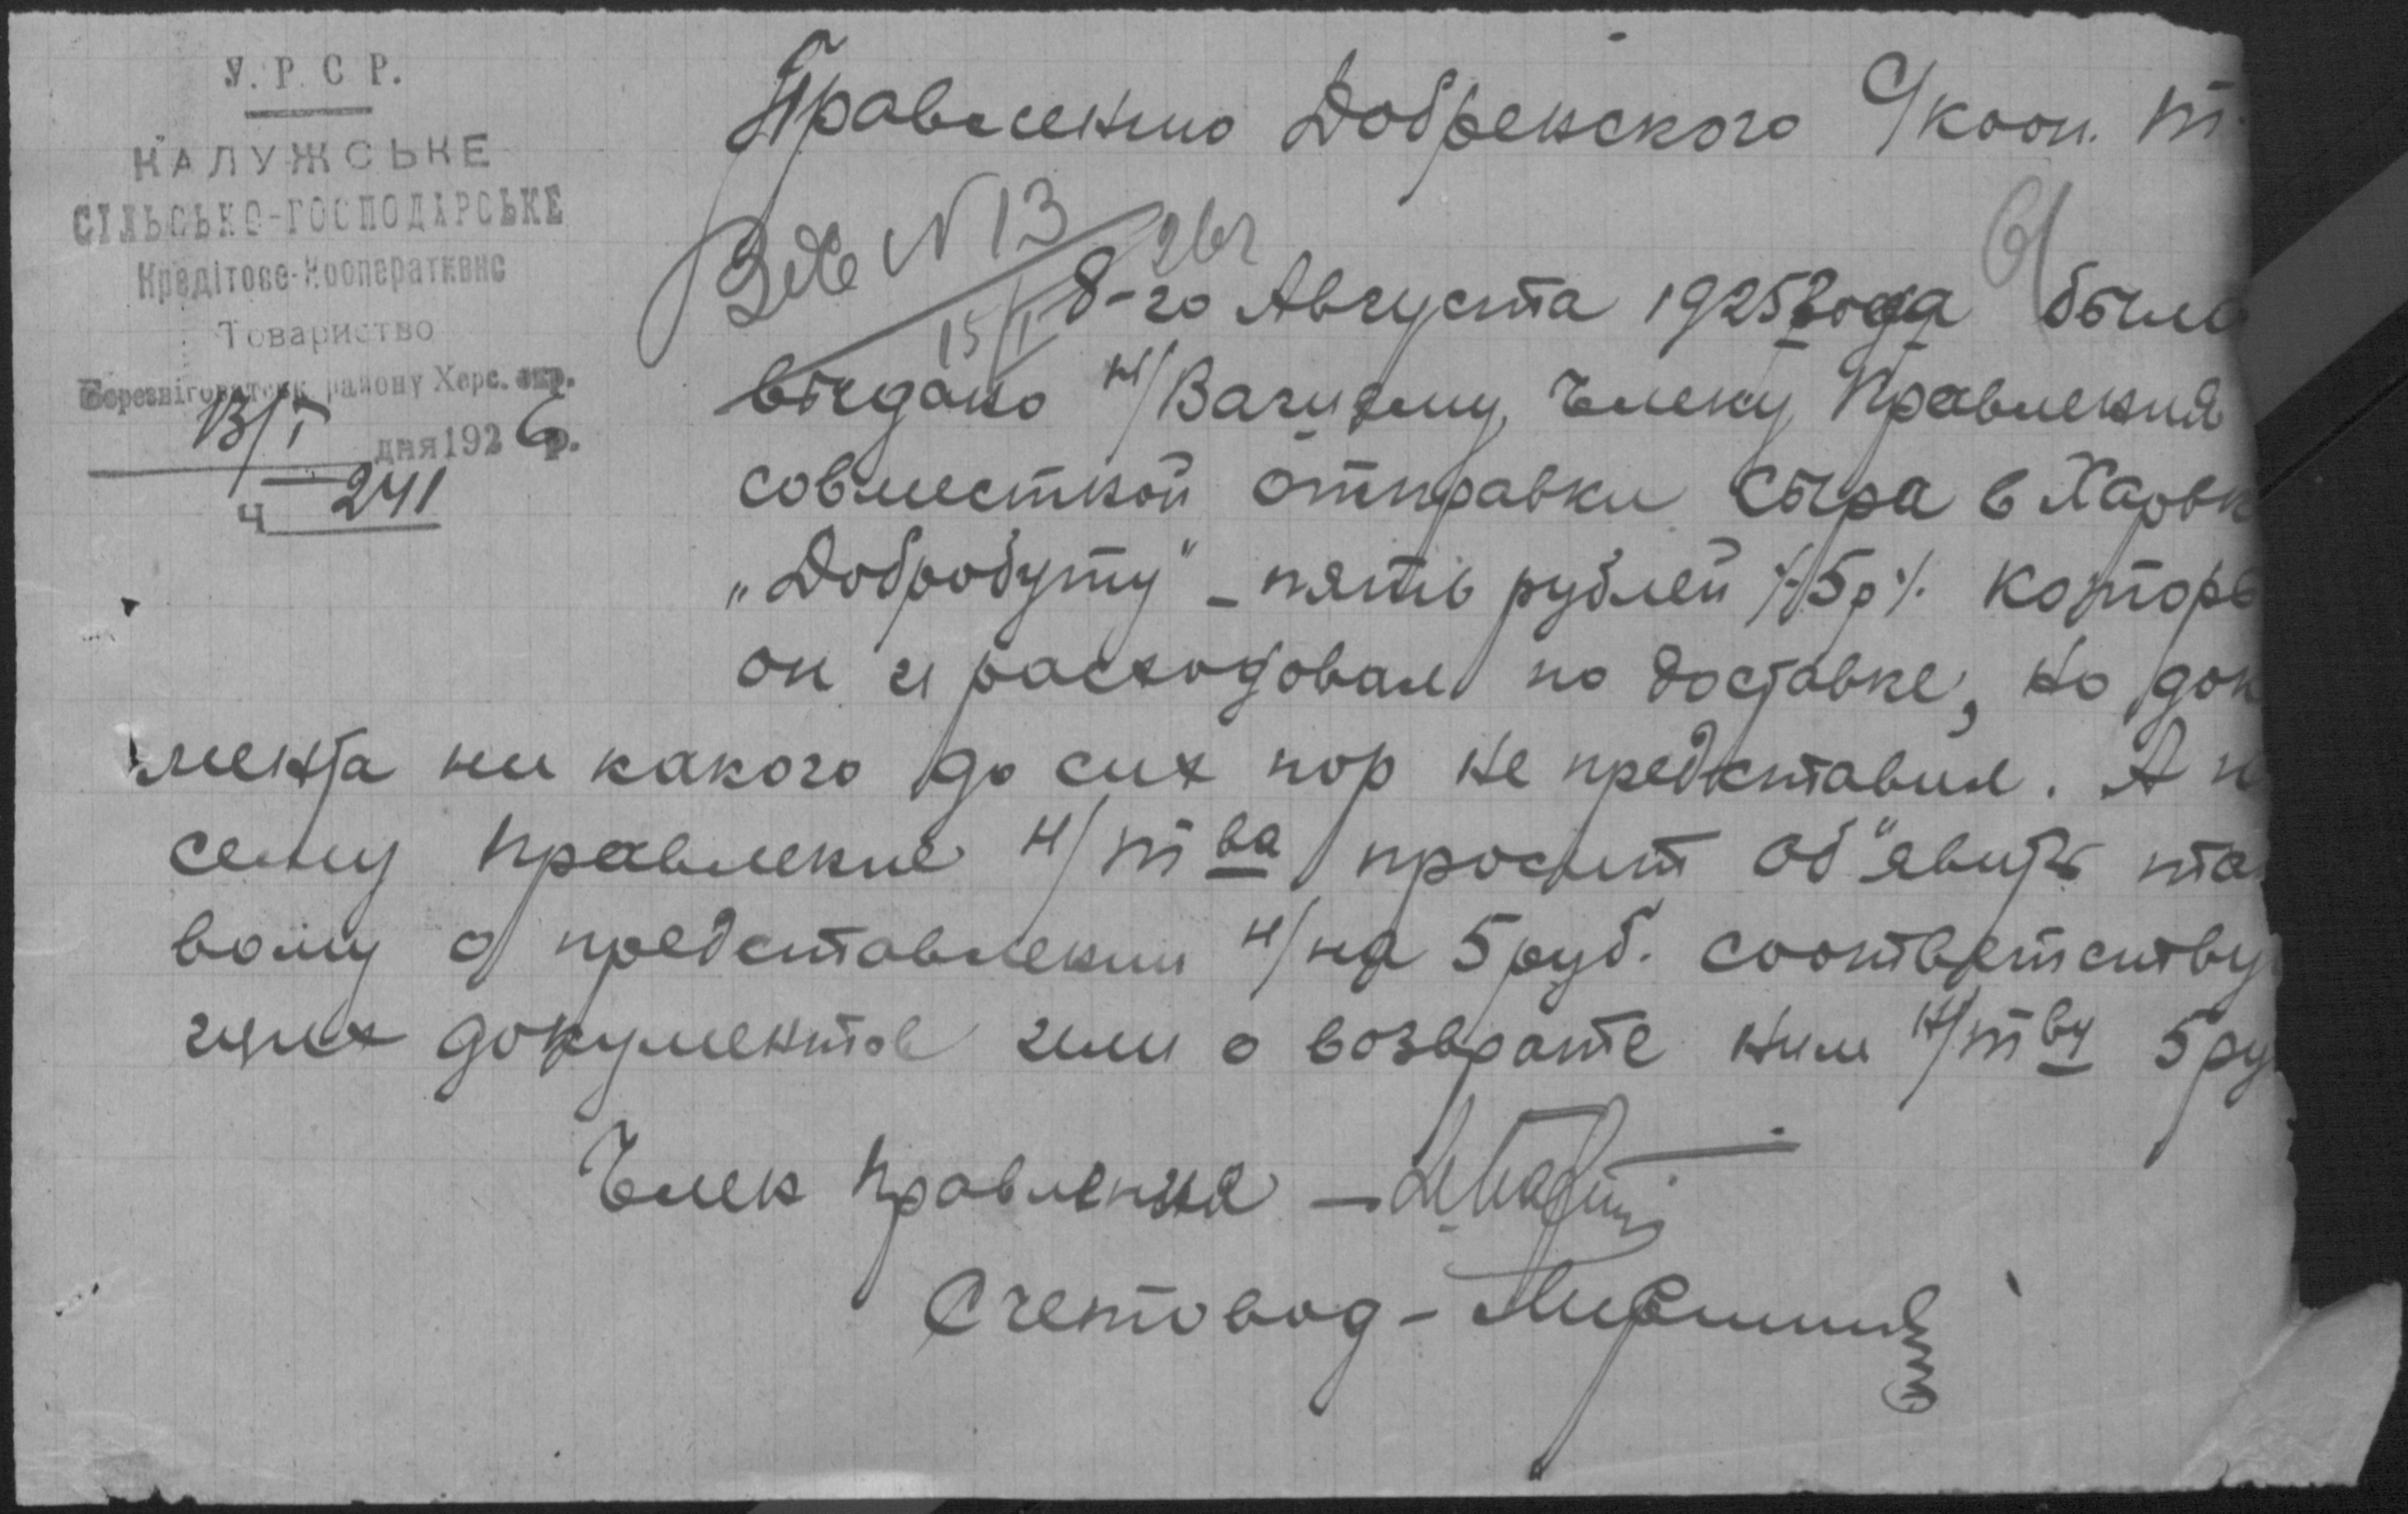 У.Р.С.Р.
КАЛУЖСЬКЕ
СІЛЬСЬКО-ГОСПОДАРСЬКЕ
Кредітове-Кооперативне
Товариство
Березніговатськ району Херс. окр.
13/I дня 1926р.
ч 241
Правлению Добренского С/кооп. т
N 13
15/I 26г
8-го Августа 1925 года было
выдано н/ Члену Правления
совместной отправки сыра в Харьк
„Добробуту" - пять рублей /-5р/. которы
он и расходовал по доставке, но док
мента ни какого до сих пор не представил. А п
сему Правление н/т ва просит об"явить та
вому о представлении н/на 5 руб. соответству
щих документов или о возврате ним н/т ву 5 ру
Член Правления -
Счетовод -